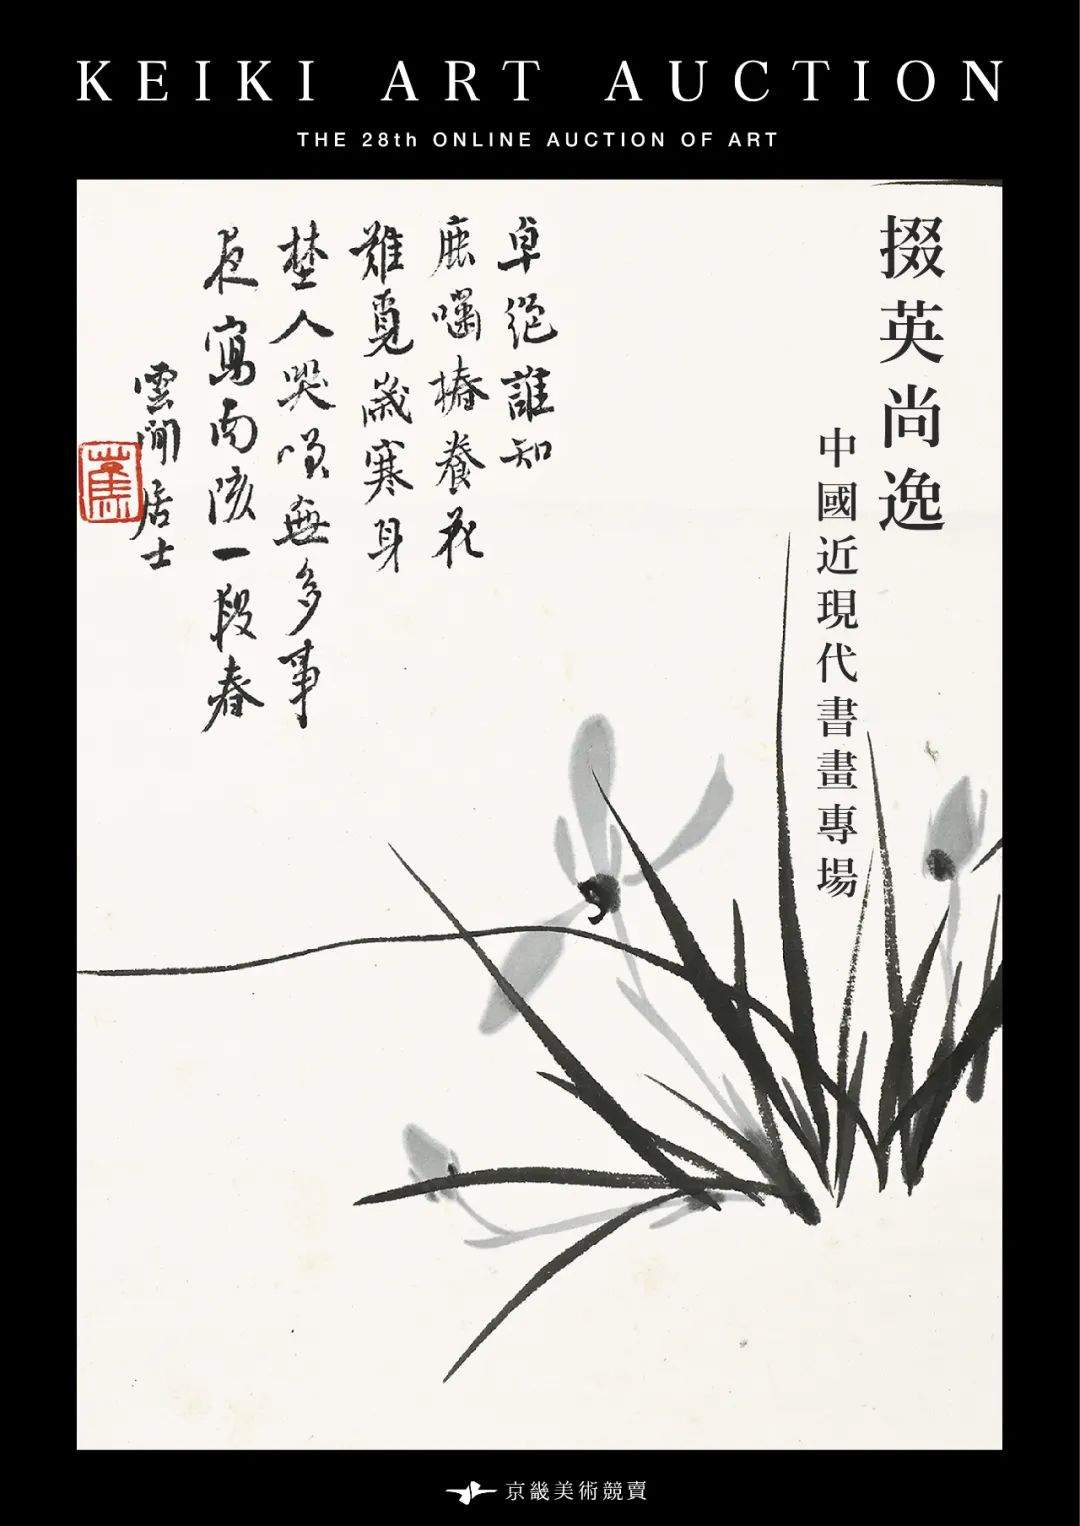 KEIKI ART AUCTION
THE 28th ONLINE AUCTION OF ART
掇英尚逸
中國近現代書畫專場
卓絕誰知
鹿嚼椿養花
難覓歲寒身
楚人哭
無多事
夜寫南陔一段春
雲閒居士
京畿美術競賣